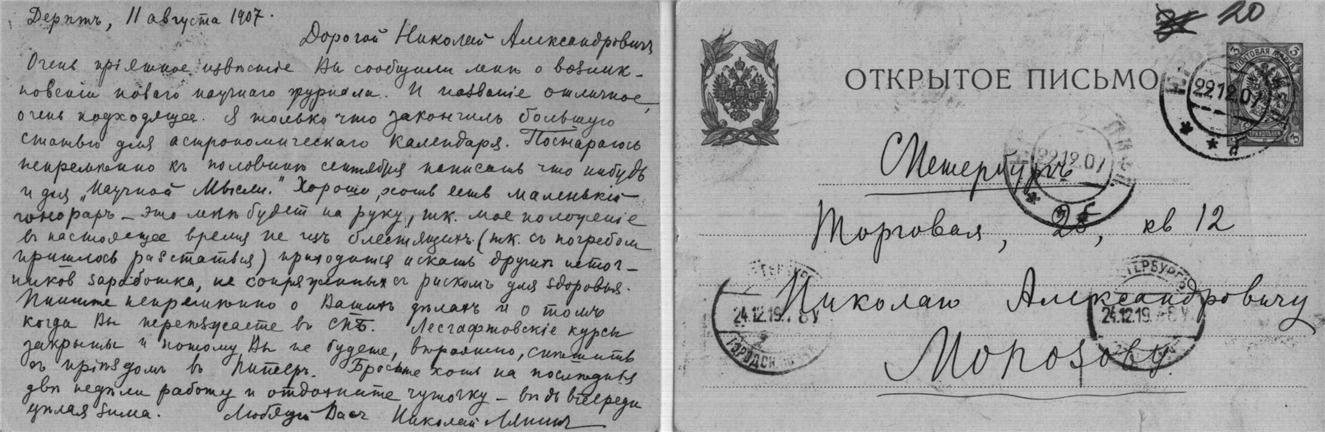 Дерптъ, 11 августа 1907.
Дорогой Николай Александровичъ
Очень прiятное извѣстiе Вы сообщили мнѣ о возник-
новенiи новаго научнаго журнала. И названiе отличное,
очень подходящее. Я только что закончилъ большую
статью для астрономическаго календаря. Постараюсь
непремѣнно къ половинѣ сентября написать что нибудь
и для „Научной Мысли." Хорошо, хоть есть маленькiй
гонораръ – это мнѣ будетъ на руку, т.к. мое положенiе
въ настоящее время не изъ блестящихъ (т.к. съ погребом
пришлось разстаться) приходится искать других источ-
никовъ заработка, не сопряженныхъ съ рискомъ для здоровья.
Пишите непремѣнно о Вашихъ дѣлахъ и о томъ
когда Вы переѣзжаете въ СПБ. Лесгафтовскiе курсы
закрыты и потому Вы не будете, вѣроятно, спѣшить
съ прiѣздомъ въ Питеръ. Бросьте хоть на послѣднiя
двѣ недѣли работу и отдохните чуточку – вѣдь впереди
цѣлая зима. Любящiй Васъ Николай
20
ОТКРЫТОЕ ПИСЬМО
3 ПОЧТОВАЯ МАРКА 3
22.12.07
22.12.07
С Петербургъ
Торговая, 25, кв 12
Николаю Александровичу
Морозову
ПЕТЕРБУРГЪ
24.12.19
ГОРОДСК.
ПЕТЕРБУРГЪ
24.12.19